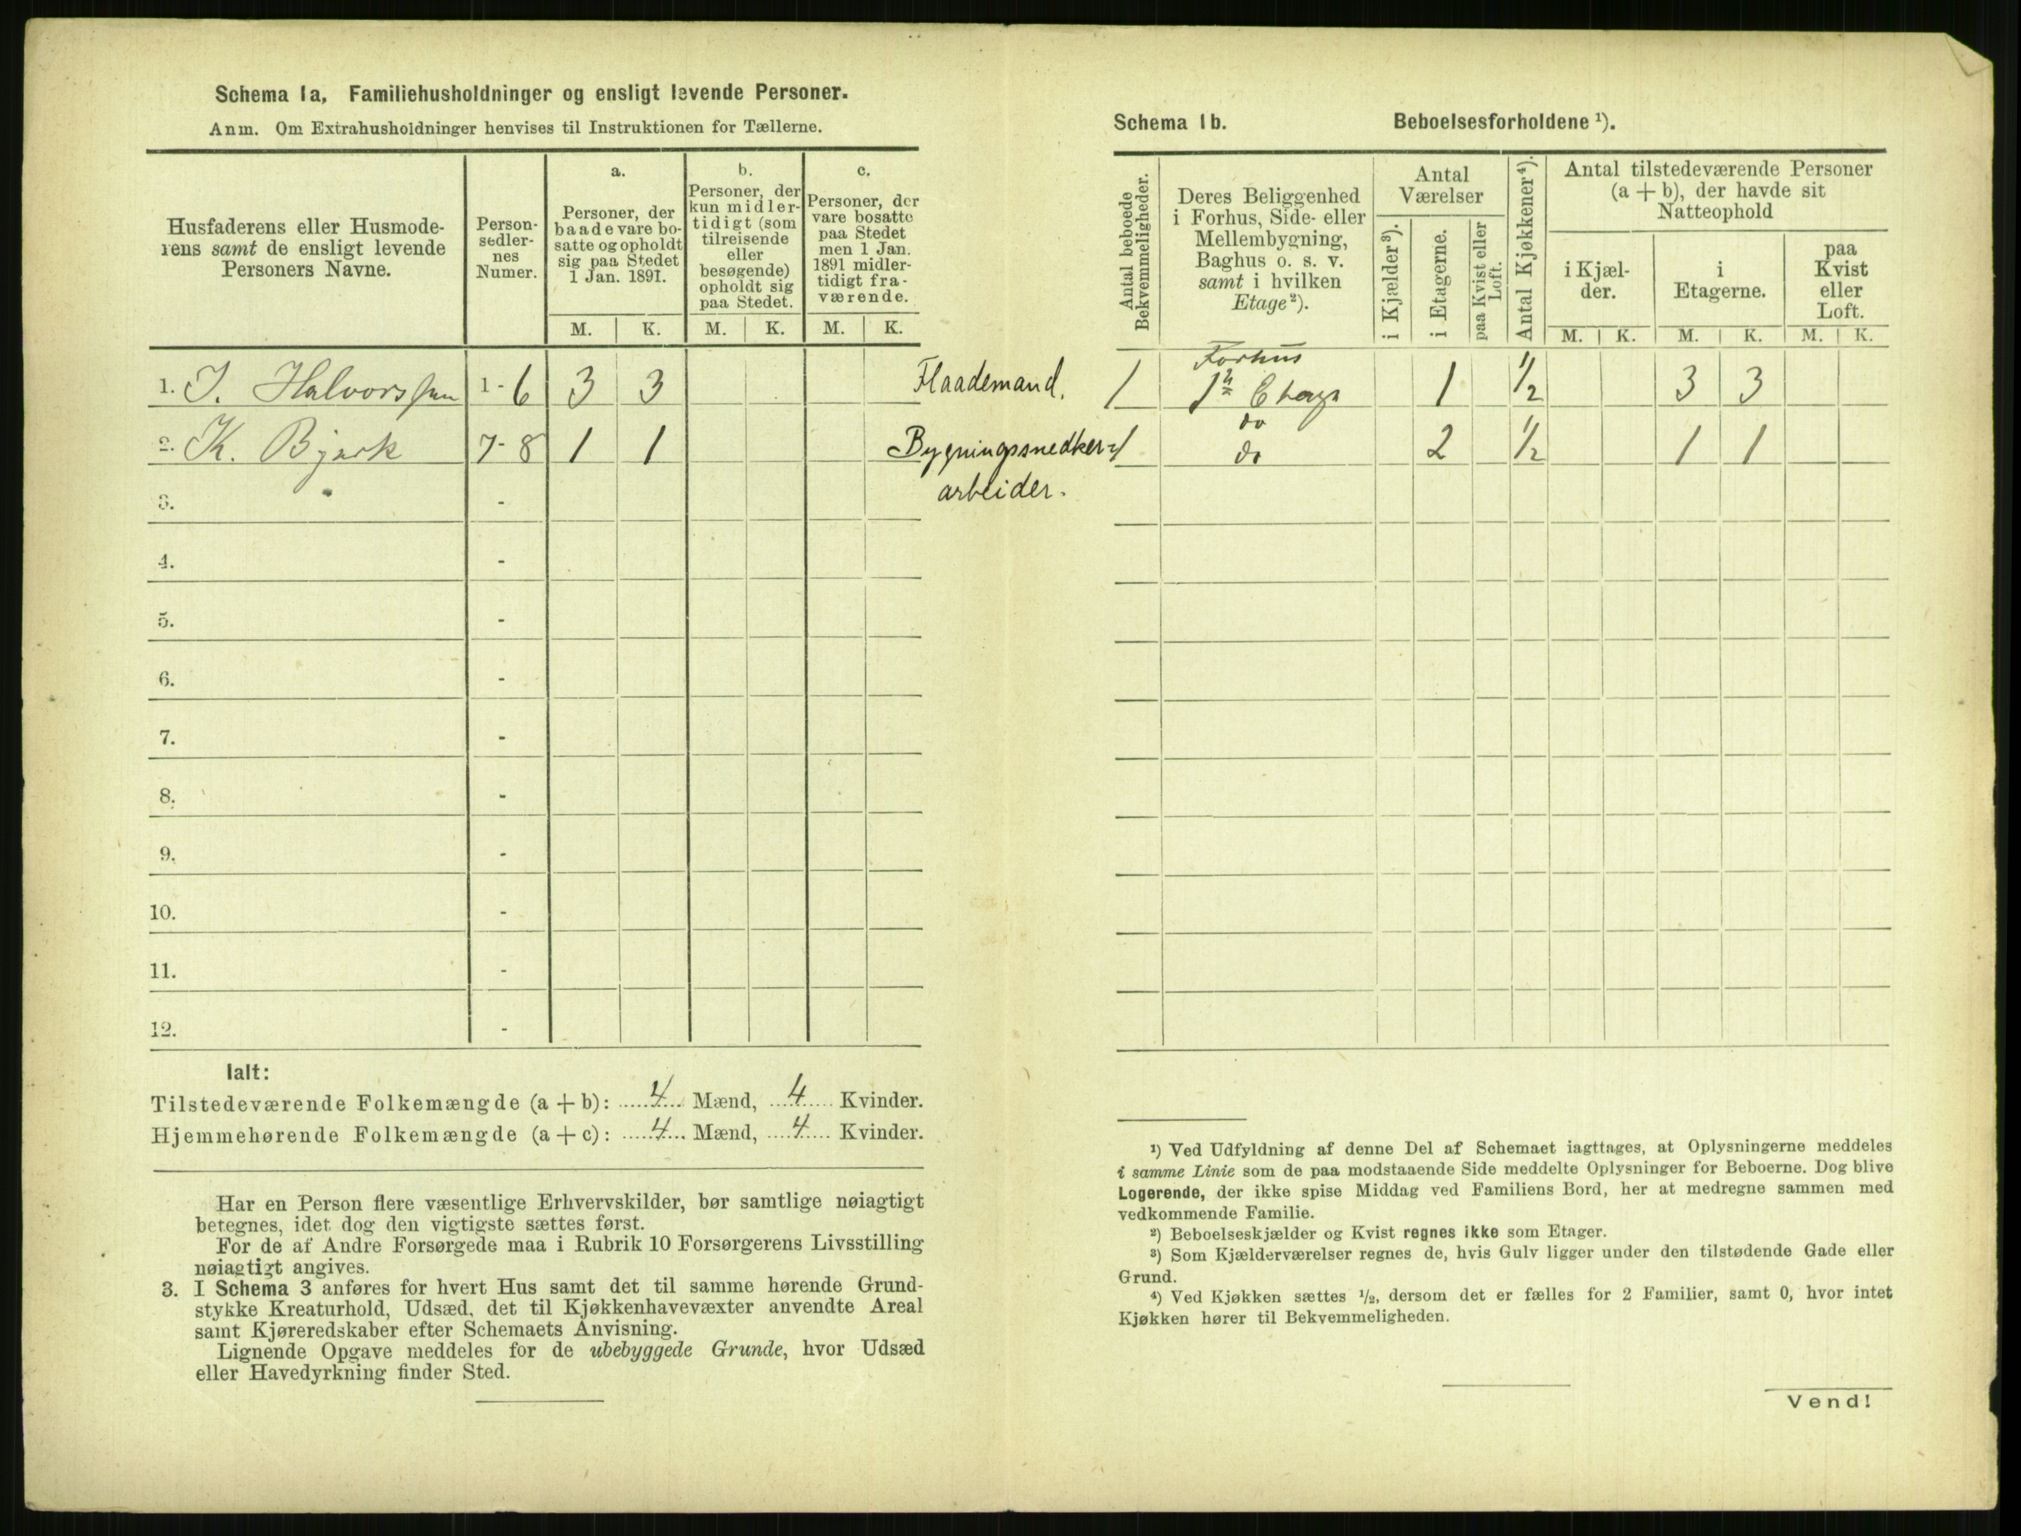 Schema 1a, Familiehusholdninger og ensligt levende Personer.
Anm. Om Extrahusholdninger henvises til Instruktionen for Tællerne.
Husfaderens eller Husmode-
rens samt de ensligt levende
Personers Navne.
Person-
sedler-
nes
Numer.
a.
Personer, der
baade vare bo-
satte og opholdt
sig paa Stedet
1 Jan. 1891.
b.
Personer, der
kun midler-
tidigt (som
tilreisende
eller
besøgende)
opholdt sig
paa Stedet.
c.
Personer, der
vare bosatte
paa Stedet
men 1 Jan.
1891 midler-
tidigt fra-
værende.
M. K. M. K. M. K.
1. I. Halvorssen 1-6 3 3 Flaademand.
2. K. Bjerk 7-8 1 1 Bygningssnedker=
arbeider.
3. -
4. -
5. -
6. -
7. -
8. -
9. -
10. -
11. -
12. -
Ialt:
Tilstedeværende Folkemængde (a + b): 4 Mænd, 4 Kvinder.
Hjemmehørende Folkemængde (a + c): 4 Mænd, 4 Kvinder.
Har en Person flere væsentlige Erhvervskilder, bør samtlige nøiagtigt
betegnes, idet dog den vigtigste sættes først.
For de af Andre Forsørgede maa i Rubrik 10 Forsørgerens Livsstilling
nøiagtigt angives.
3. I Schema 3 anføres for hvert Hus samt det til samme hørende Grund-
stykke Kreaturhold, Udsæd, det til Kjøkkenhavevæxter anvendte Areal
samt Kjøreredskaber efter Schemaets Anvisning.
Lignende Opgave meddeles for de ubebyggede Grunde, hvor Udsæd
eller Havedyrkning finder Sted.
Schema 1b. Beboelsesforholdene ¹).
Antal beboede
Bekvemmeligheder.
Deres Beliggenhed
i Forhus, Side- eller
Mellembygning,
Baghus o. s. v.
samt i hvilken
Etage²).
Antal
Værelser
i Kjælder³).
i Etagerne.
paa Kvist eller
Loft.
Antal Kjøkkener⁴).
Antal tilstedeværende Personer
(a + b), der havde sit
Natteophold
i Kjæl-
der.
i
Etagerne.
paa
Kvist
eller
Loft.
M. K. M. K. M. K.
Forhus
1 1ste Etage 1 ½ 3 3
do
1 do 2 ½ 1 1
¹) Ved Udfyldning af denne Del af Schemaet iagttages, at Oplysningerne meddeles
i samme Linie som de paa modstaaende Side meddelte Oplysninger for Beboerne. Dog blive
Logerende, der ikke spise Middag ved Familiens Bord, her at medregne sammen med
vedkommende Familie.
²) Beboelseskjælder og Kvist regnes ikke som Etager.
³) Som Kjælderværelser regnes de, hvis Gulv ligger under den tilstødende Gade eller
Grund.
⁴) Ved Kjøkken sættes ½, dersom det er fælles for 2 Familier, samt 0, hvor intet
Kjøkken hører til Bekvemmeligheden.
Vend!